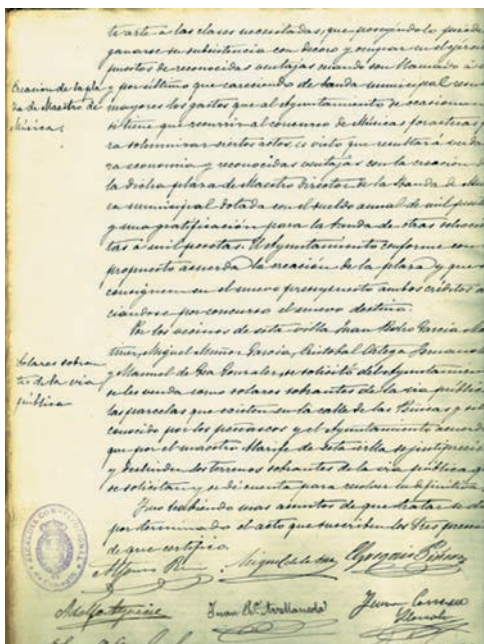 te arte á las clases necesitadas, que poseyéndolo puede
ganarse su subsistencia con decoro y ocupar en el ejerci
puestos de reconocidas ventajas cuando son llamado á
Creacion de la pla
y por último que careciendo de banda municipal resul
da de Maestro de
mayores los gastos que al Ayuntamiento se ocasionan
Música
si tiene que recurrir al concurso de Músicas forasteras p
ra solemnizar ciertos actos, es visto que resultará verda
ra economia y reconocidas ventajas con la creacion d
la dicha plaza de Maestro director de la Banda de Mú
ca municipal dotada con el sueldo anual de mil peset
y una gratificación para la banda de otras
tas á mil pesetas. El Ayuntamiento conforme con
propuesto acuerda la creación de la plaza y que
consignen en el nuevo presupuesto ambos créditos
ciandose por concurso el nuevo destino.
Por los vecinos de esta villa Juan Pedro Garcia Ma
tinez, Miguel Muñoz Garcia, Cristobal Ortega
y Manuel de Gonzalez, se solicitó del Ayuntamien
Solares sobran
se les venda como solares sobrantes de la via públic
tes de la via
las parcelas que existen en la calle de las y sit
pública
conocido por los peñascos y el Ayuntamiento acuerd
que por el maestro Alarife de esta villa se justiprecie
y deslinden los terrenos sobrantes de la via pública q
se solicitan y se dé cuenta para resolver en definitiva
Y no habiendo mas asuntos de que tratar se di
por terminado el acto que suscriben los Sres presen
de que certifico.
ALCALDIA CONSTITUCIONAL
Alfonso Miguel de la Gregorio
Adolfo Juan Avellaneda Juan